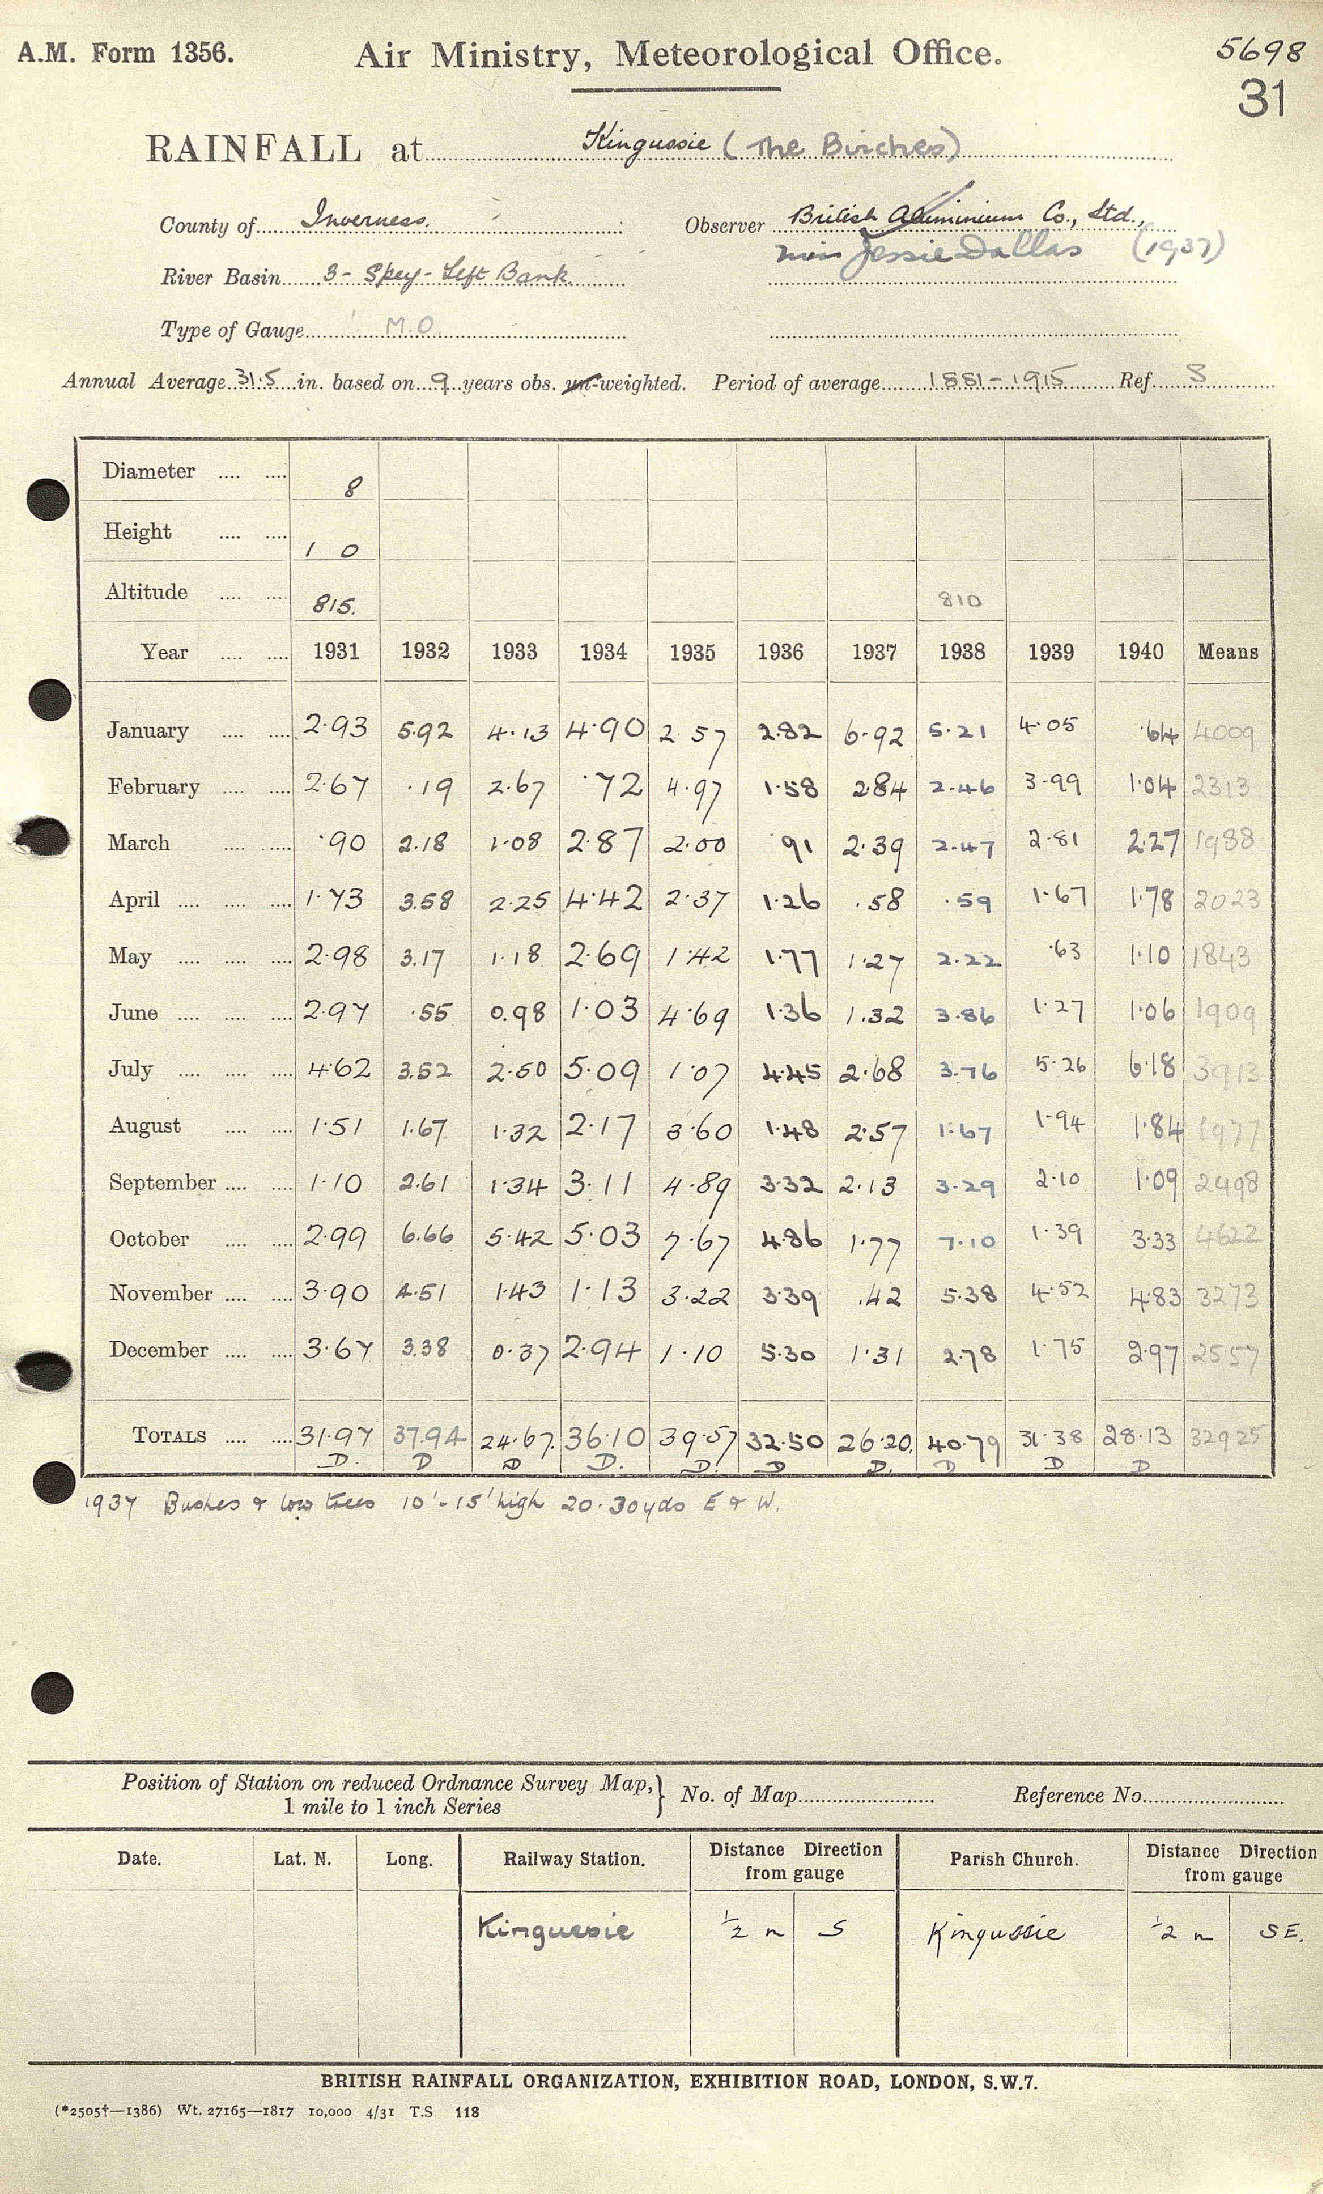 A.M. Form 1356. Air Ministry, Meteorological Office. 5698
31
RAINFALL at Kingussie (The Birches)
County of Inverness. Observer British Aluminium Co., Ltd.,
Miss Jessie Dallas (1937)
River Basin 3 - Spey - Left Bank
Type of Gauge M.O.
Annual Average 31.5 in. based on 9 years obs. un-weighted. Period of average 1881-1915 Ref. S
Diameter 8
Height 1 0
Altitude 815. 810
Year 1931 1932 1933 1934 1935 1936 1937 1938 1939 1940 Means
January 2.93 5.92 4.13 4.90 2.57 2.82 6.92 5.21 4.05 .64 4009
February 2.67 .19 2.67 .72 4.97 1.58 2.84 2.46 3.99 1.04 2313
March .90 2.18 1.08 2.87 2.00 .91 2.39 2.47 2.81 2.27 1988
April 1.73 3.58 2.25 4.42 2.37 1.26 .58 .59 1.67 1.78 2023
May 2.98 3.17 1.18 2.69 1.42 1.77 1.27 2.22 .63 1.10 1843
June 2.97 .55 0.98 1.03 4.69 1.36 1.32 3.86 1.27 1.06 1909
July 4.62 3.52 2.50 5.09 1.07 4.45 2.68 3.76 5.26 6.18 3913
August 1.51 1.67 1.32 2.17 3.60 1.48 2.57 1.67 1.94 1.84 1977
September 1.10 2.61 1.34 3.11 4.89 3.32 2.13 3.29 2.10 1.09 2498
October 2.99 6.66 5.42 5.03 7.67 4.86 1.77 7.10 1.39 3.33 4622
November 3.90 4.51 1.43 1.13 3.22 3.39 .42 5.38 4.52 4.83 3273
December 3.67 3.38 0.37 2.94 1.10 5.30 1.31 2.78 1.75 2.97 2557
TOTALS 31.97 37.94 24.67. 36.10 39.57 32.50 26.20. 40.79 31.38 28.13 32925
D. D D D. D. D D. D D D
1937 Bushes & low trees 10'-15' high 20-30yds E & W.
Position of Station on reduced Ordnance Survey Map, 1 mile to 1 inch Series } No. of Map Reference No.
Date. Lat. N. Long. Railway Station. Distance Direction from gauge Parish Church. Distance Direction from gauge
Kingussie ½ m S Kingussie ½ m SE.
BRITISH RAINFALL ORGANIZATION, EXHIBITION ROAD, LONDON, S.W.7.
(*2505†—1386) Wt. 27165—1817 10,000 4/31 T.S 118